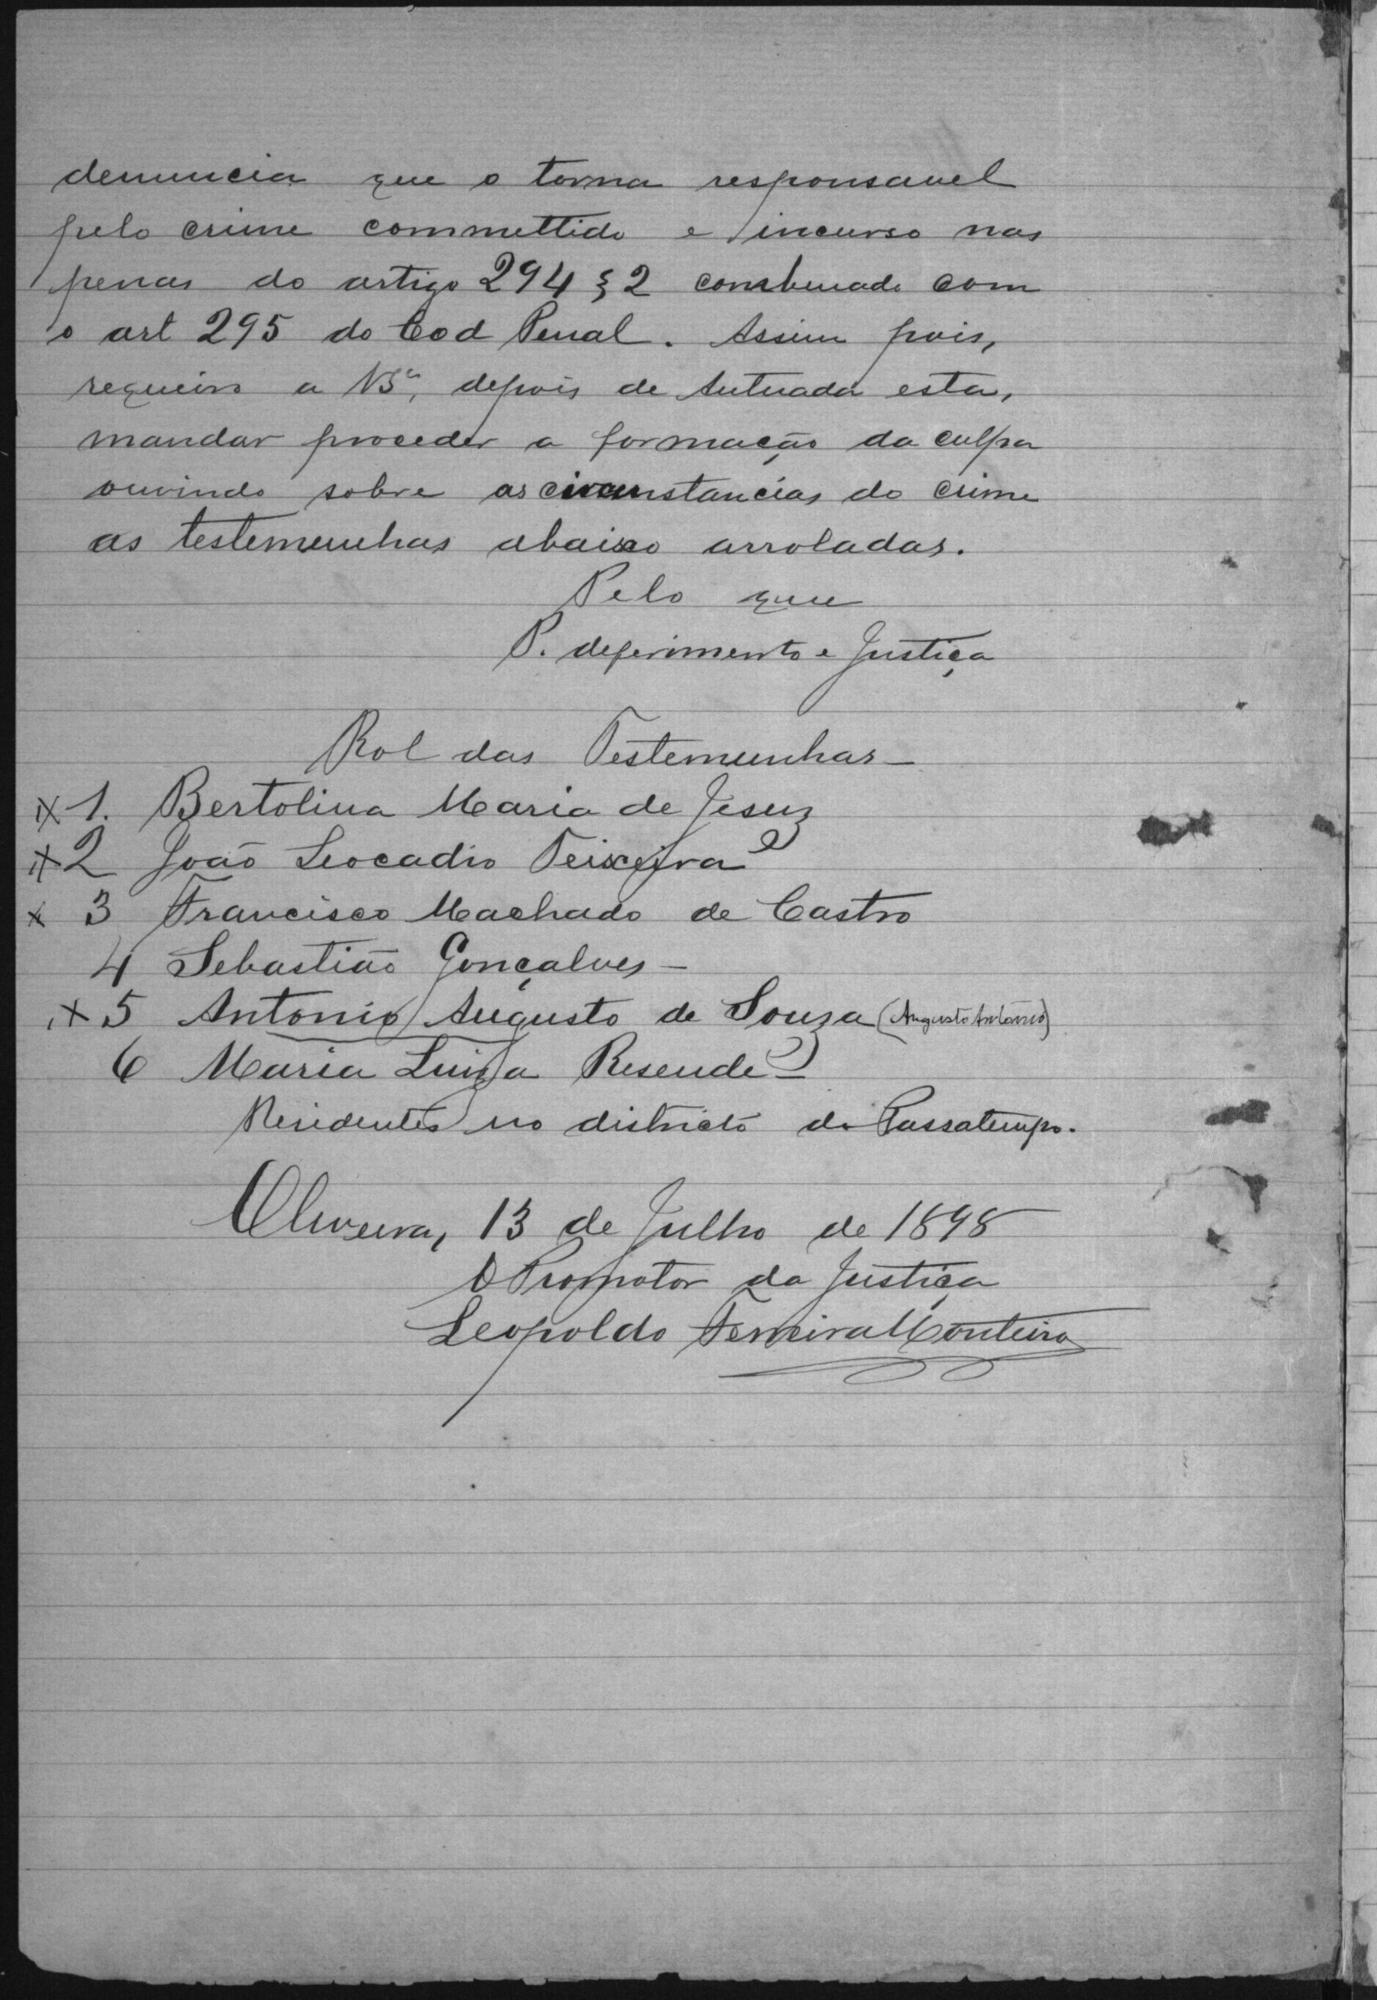 denuncia que o torna responsavel
pelo crime commettido e incurso nas
penas do artigo 294 § 2 combenado com
o art 295 do Cod Penal. Assim pois,
requeiro a VSª, depois de Autuada esta,
mandar proceder a formação da culpa
ouvindo sobre as circunstancias do crime
as testemunhas abaixo arroladas.
Pelo que
P. deferimento e Justiça
Rol das Testemunhas
1. Bertolina Maria de Jesuz
2 João Leocadio Teixeira
3 Francisco Machado de Castro
4 Sebastião Gonçalves
5 Antonio Augusto de Souza (Augusto Antonio)
6 Maria Luiza Resende
Residentes no districto do Passatempo.
Oliveira, 13 de Julho de 1898
O Promotor da Justiça
Leopoldo Ferreira Monteiro